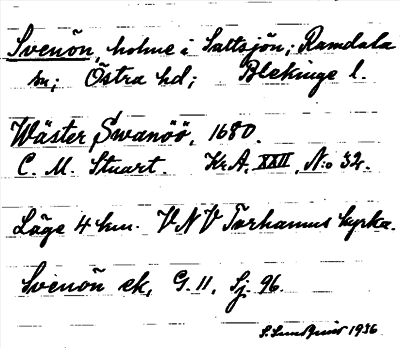 Svenön, holme i Saltsjön; Ramdala
sn; Östra hd; Blekinge l.
Wäster Swanöö, 1680.
C. M. Stuart. Kr.A. XXII, N:o 32.
Läge 4 km. VNV Torhamns kyrka.
Svenön ek, G. 11, Sj. 96.
S. Lundquist 1936